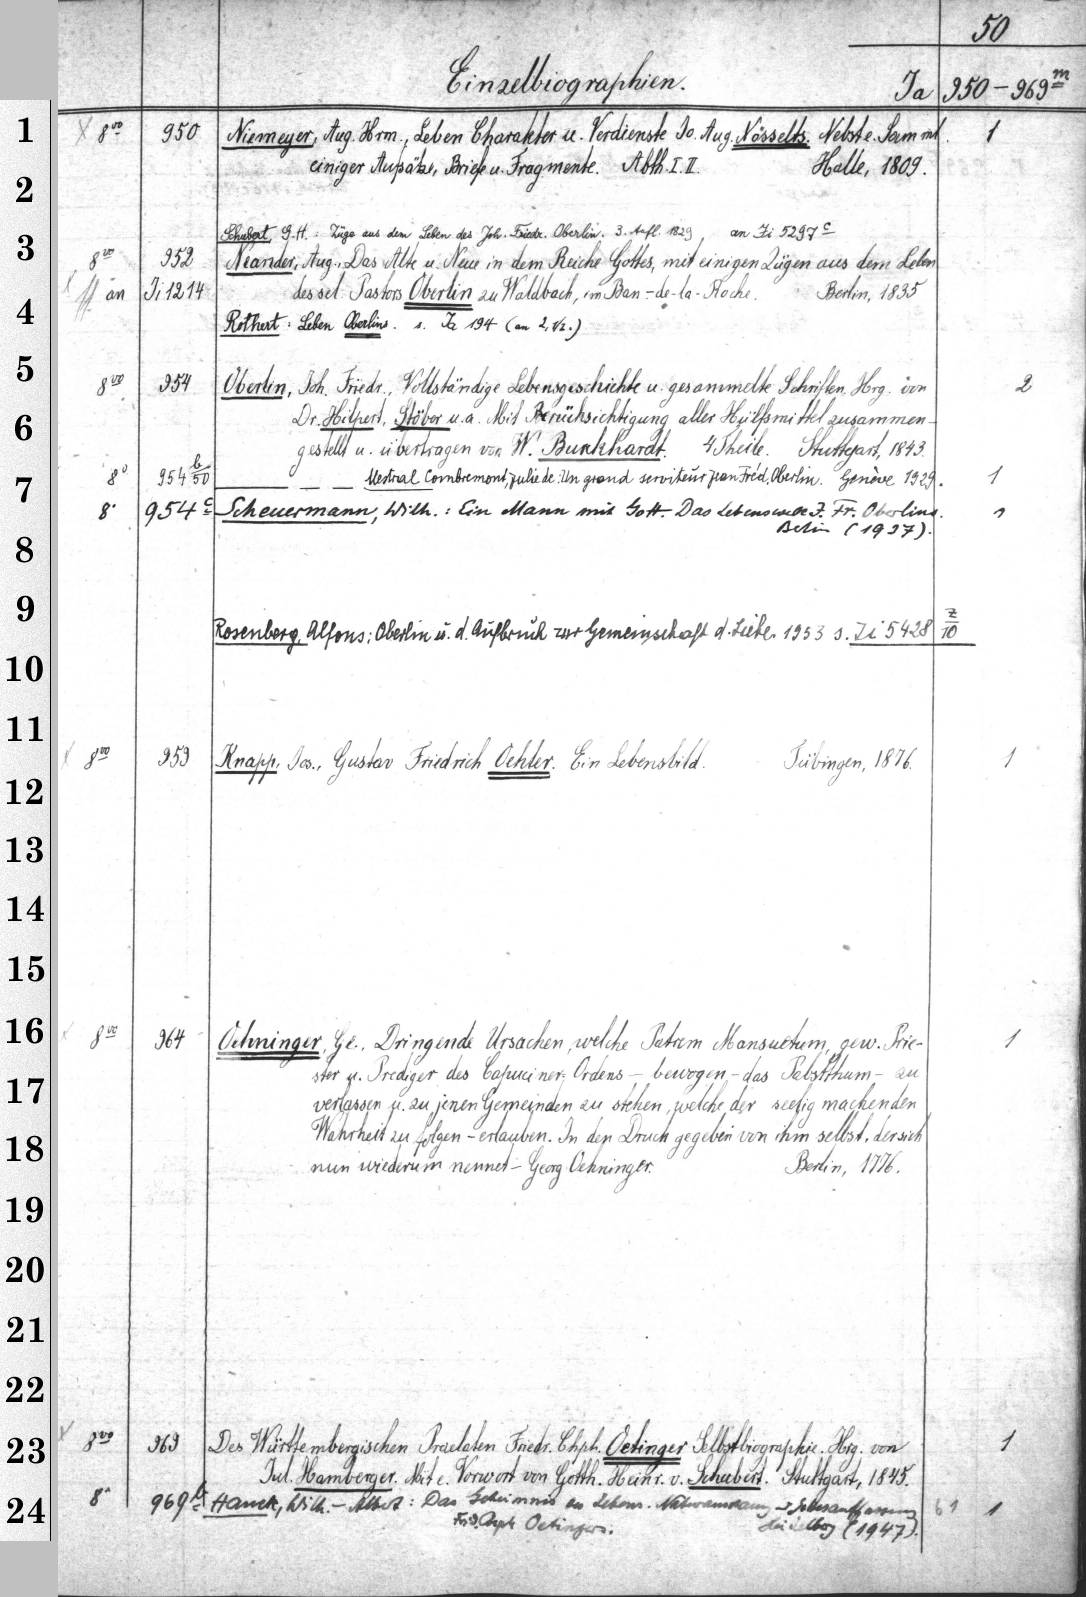 50
Einzelbiographien.
Ia 950 – 969m
1 8vo 950 Niemeyer, Aug. Hrm., Leben Charakter u. Verdienste Jo. Aug. Nösselts. Nebst e. Samml. 1
einiger Aufsätze, Briefe u. Fragmente. Abth. I. II. Halle, 1809.
2
Schubert, G. H.: Züge aus dem Leben des Joh. Friedr. Oberlin. 3. Aufl. 1829, an Zi 5297c
3 8vo 952 Neander, Aug., Das Alte u. Neue in dem Reiche Gottes, mit einigen Zügen aus dem Leben
an Ji 1214 des sel. Pastors Oberlin zu Waldbach, im Ban-de-la-Roche. Berlin, 1835
4 Rothert: Leben Oberlins. s. Ia 194 (an 2, 1/2.)
5 8vo 954 Oberlin, Joh. Friedr., Vollständige Lebensgeschichte u. gesammelte Schriften. Hrg. von 2
6 Dr. Hilpert, Stöber u. a. Mit Berücksichtigung aller Hülfsmittel zusammen-
gestellt u. übertragen von W. Burkhardt. 4 Theile. Stuttgart, 1843.
7 8° 954 b/50 — — — Mestral Combremont, Julie de: Un grand serviteur Jean Fréd. Oberlin. Genève 1929. 1
8° 954c Scheuermann, Wilh.: Ein Mann mit Gott. Das Lebenswerk J. Fr. Oberlins. 1
8 Berlin (1937).
9 Rosenberg, Alfons: Oberlin u. d. Aufbruch zur Gemeinschaft d. Liebe. 1953 s. Zi 5428 z/10
10
11
8vo 959 Knapp, Jos., Gustav Friedrich Oehler. Ein Lebensbild. Tübingen, 1876. 1
12
13
14
15
16 8vo 964 Oehninger, Ge., Dringende Ursachen, welche Patrem Mansuetum, gew. Prie- 1
ster u. Prediger des Capuciner-Ordens – bewogen – das Pabstthum – zu
17 verlassen u. zu jenen Gemeinden zu stehen, welche der seelig machenden
18 Wahrheit zu folgen – erlauben. In den Druck gegeben von ihm selbst, der sich
nun wiederum nennet – Georg Oehninger. Berlin, 1776.
19
20
21
22
23 8vo 969 Des Württembergischen Praelaten Friedr. Chph. Oetinger Selbstbiographie. Hrg. von 1
Jul. Hamberger. Mit e. Vorwort von Gotth. Heinr. v. Schubert. Stuttgart, 1845.
24 8° 969b Hauck, Wilh.-Albert: Das Geheimnis des Lebens. Naturanschauung u. Gottesauffassung 1
Frd. Chph Oetingers. Heidelberg (1947).